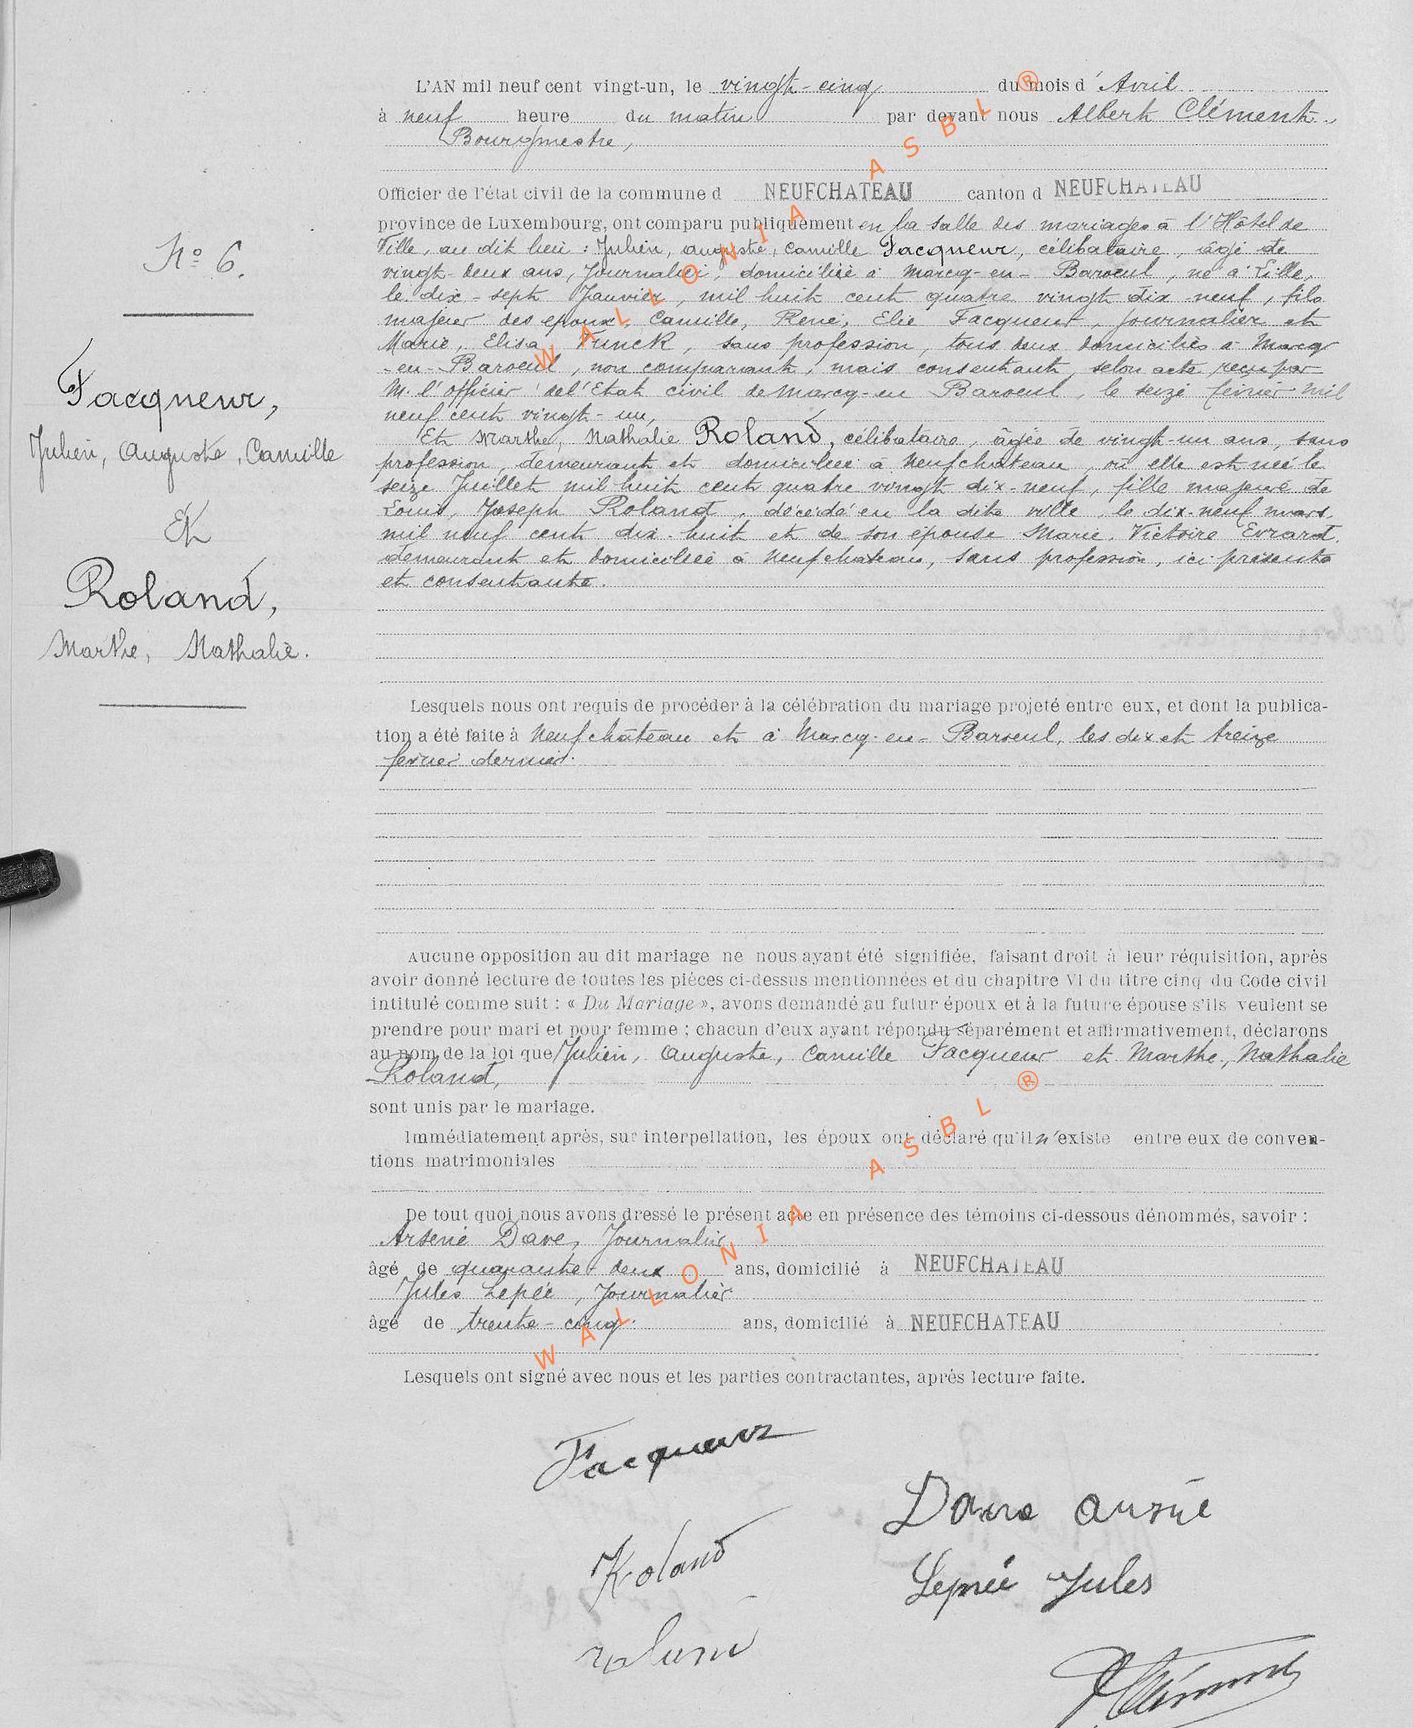 L'AN mil neuf cent vingt-un, le vingt-cinq du mois d'Avril
à neuf heure du matin par devant nous Albert Clément,
Bourgmestre,
Officier de l'état civil de la commune d NEUFCHATEAU canton d NEUFCHATEAU
province de Luxembourg, ont comparu publiquement en la salle des mariages à l'Hôtel de
Ville, au dit lieu : Julien, Auguste, Camille Facqueur, célibataire, âgé de
vingt-deux ans, Journalier, domicilié à Marcq-en-Baroeul, né à Lille,
le dix-sept Janvier, mil huit cent quatre vingt dix neuf, fils
majeur des epoux, Camille, René, Elie Facqueur, journalier et
Marie, Elisa, Funck, sans profession, tous deux domiciliés à Marcq
-en-Baroeul, non comparants, mais consentants, selon acte reçu par
M. l'officier de l'Etat civil de Marcq-en Baroeul, le seize février mil
neuf cent vingt-un,
Et Marthe, Nathalie Roland, célibataire, âgée de vingt-un ans, sans
profession, demeurant et domiciliée à Neufchâteau, où elle est née le
seize Juillet mil huit cent quatre vingt dix-neuf, fille majeure de
Louis, Joseph Roland, décédé en la dite ville, le dix-neuf mars,
mil neuf cent dix-huit et de son épouse Marie, Victoire Evrard,
demeurant et domiciliée à Neufchateau, sans profession, ici présente
et consentante.
N° 6.
Facqueur,
Julien, Auguste, Camille
Et
Roland,
Marthe, Nathalie.
Lesquels nous ont requis de procéder à la célébration du mariage projeté entre eux, et dont la publica-
tion a été faite à Neufchâteau et à Marcq-en-Baroeul, les dix et treize
février dernier.
Aucune opposition au dit mariage ne nous ayant été signifiée, faisant droit à leur réquisition, après
avoir donné lecture de toutes les pièces ci-dessus mentionnées et du chapitre VI du titre cinq du Code civil
intitulé comme suit : « Du Mariage », avons demandé au futur époux et à la future épouse s'ils veulent se
prendre pour mari et pour femme ; chacun d'eux ayant répondu séparément et affirmativement, déclarons
au nom de la loi que Julien, Auguste, Camille Facqueur et Marthe, Nathalie
Roland,
sont unis par le mariage.
Immédiatement après, sur interpellation, les époux ont déclaré qu'il n'existe entre eux de conven-
tions matrimoniales
De tout quoi nous avons dressé le présent acte en présence des témoins ci-dessous dénommés, savoir :
Arsène Dave, Journalier
âgé de quarante deux ans, domicilié à NEUFCHATEAU
Jules Lepée, Journalier
âgé de trente-cinq ans, domicilié à NEUFCHATEAU
Lesquels ont signé avec nous et les parties contractantes, après lecture faite.
Facqueur
Roland
Roland
Lepée Jules
Clément
WALLONIA ASBL ®
WALLONIA ASBL ®